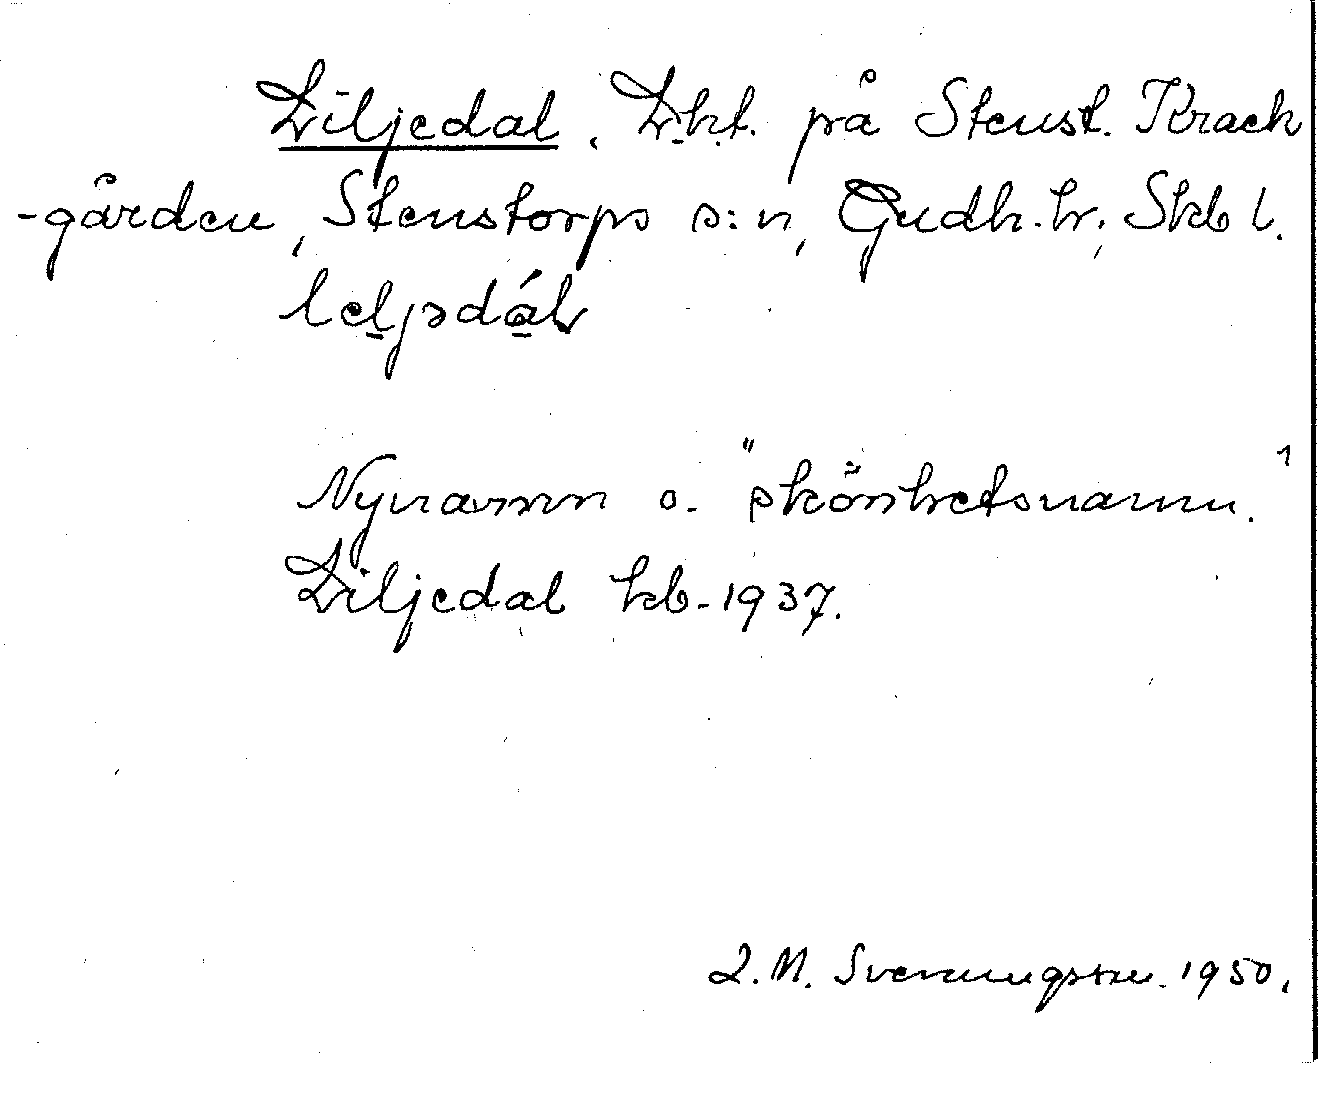 Liljedal. Lht. på Stenst. Krack
-gården, Stenstorps s:n, Gudh. hr, Skb l.
leljədál
Nynamn o. "skönhetsnamn."
Liljedal kb. 1937.
L. M. Svenungsson. 1950.